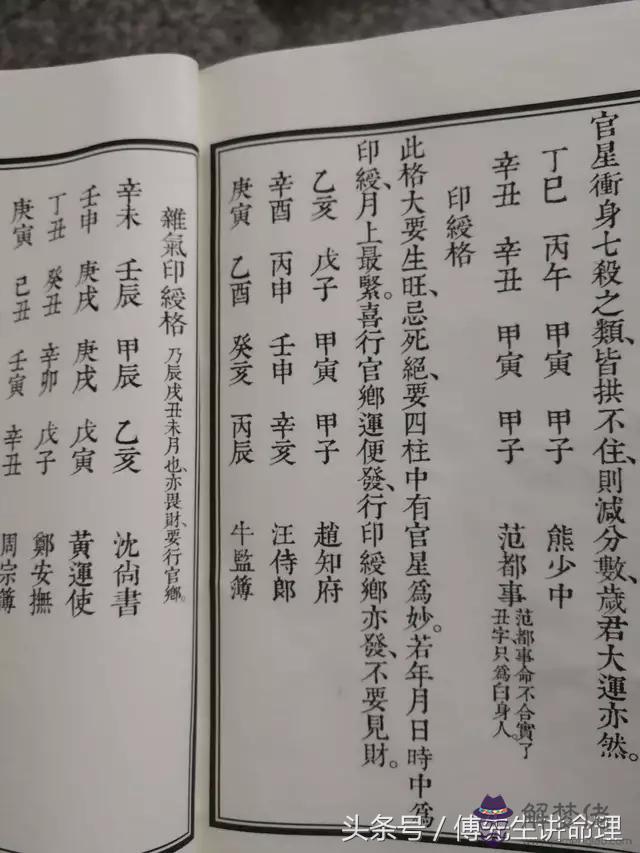 官星衝身七殺之類、皆拱不住、則減分數、歲君大運亦然。
丁巳 丙午 甲寅 甲子 熊少中
辛丑 辛丑 甲寅 甲子 范都事 范都事命不合實了丑字只為白身人。
印綬格
此格大要生旺、忌死絕、要四柱中有官星為妙。若年月日時中為
印綬、月上最緊。喜行官鄉運便發、行印綬鄉亦發、不要見財。
乙亥 戊子 甲寅 甲子 趙知府
辛酉 丙申 壬申 辛亥 汪侍郎
庚寅 乙酉 癸亥 丙辰 牛監簿
雜氣印綬格 乃辰戌丑未月也、亦畏財、要行官鄉。
辛未 壬辰 甲辰 乙亥 沈尙書
壬申 庚戌 庚戌 戊寅 黃運使
丁丑 癸丑 辛卯 戊子 鄭安撫
庚寅 己丑 壬寅 辛丑 周宗簿
頭條號/傅先生講命理
解夢佬